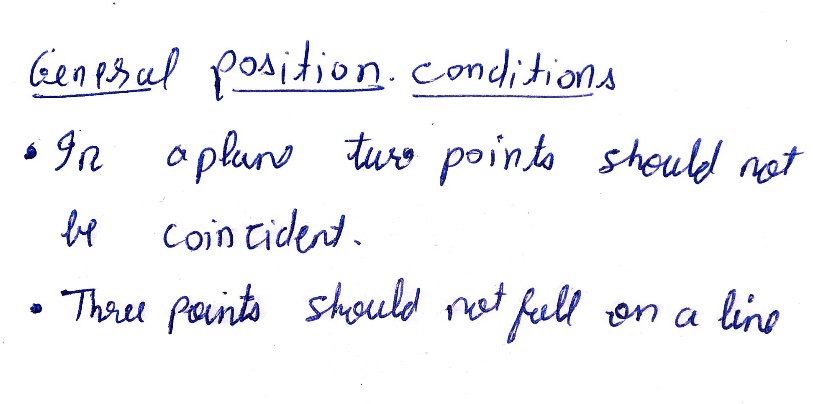 General position. conditions
• In a plane two points should not
be coincident.
• Three points should not fall on a line